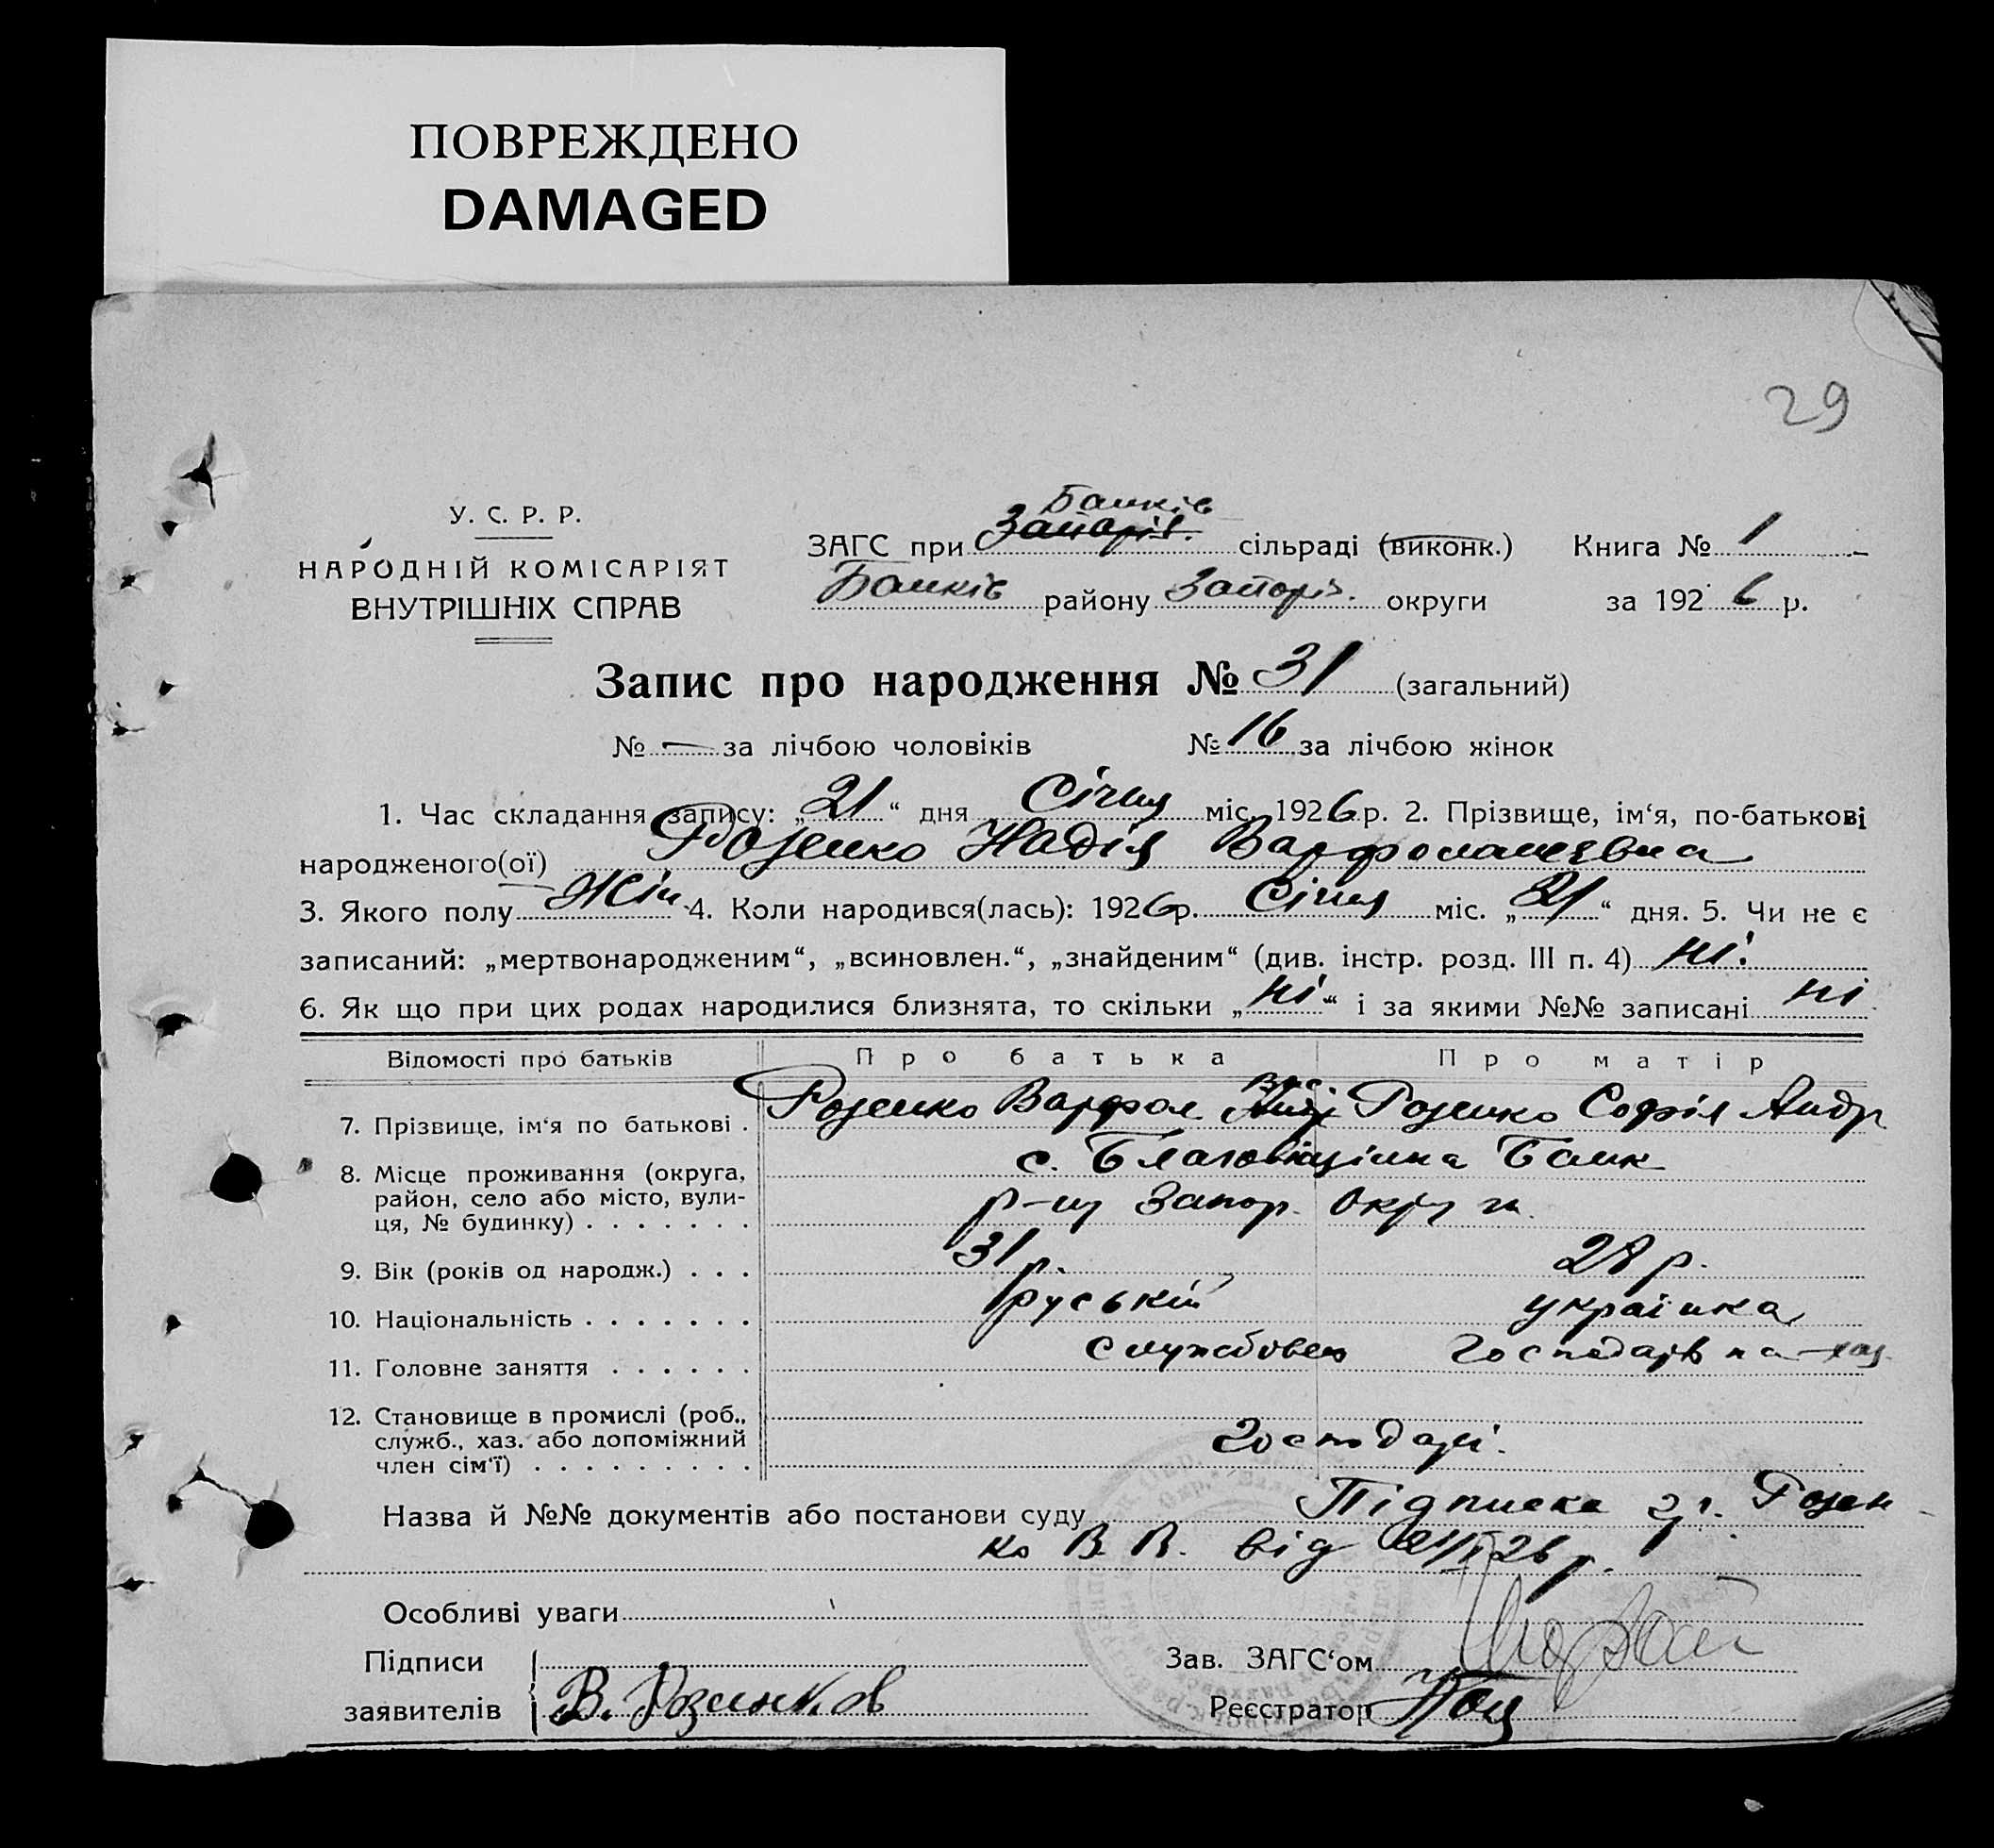 ПОВРЕЖДЕНО
DAMAGED
29
У. С. Р. Р.
НАРОДНІЙ КОМІСАРІЯТ
ВНУТРІШНІХ СПРАВ
Балків
ЗАГС при Запоріз. сільраді (виконк.) Книга № 1
Балків района Запоріз. округи за 1926 р.
Запис про народження № 31 (загальний)
№ — за лічбою чоловіків № 16 за лічбою жінок
1. Час складання запису: „21“ дня Січня міс. 1926 р. 2. Прізвище, ім‘я, по-батькові
народженого(ої) Розенко Надія Варфоламеевна
3. Якого полу Жін. 4. Коли народився(лась): 1926 р. Січня міс. „21“ дня. 5. Чи не є
записаний: „мертвонародженим“, „всиновлен.“, „знайденим“ (див. інстр. розд. III п. 4) ні.
6. Як що при цих родах народилися близнята, то скільки „ні“ і за якими №№ записані ні
Відомості про батьків Про батька Про матір
7. Прізвище, ім‘я по батькові . Розенко Варфол. Вас. Розенко Софія Андр
8. Місце проживання (округа, с. Благовіщінка Балк
район, село або місто, вули-
ця, № будинку) . . . . . . . р-ну Запор. Округи.
9. Вік (років од народж.) . . . 31 р. 28 р.
10. Національність . . . . . . . руський українка
11. Головне заняття . . . . . . службовец господарів на
12. Становище в промислі (роб.,
служб., хаз. або допоміжний господарі.
член сім‘ї) . . . . . . . . . .
Назва й №№ документів або постанови суду Підписка гр. Розен-
ко В. В. від 21/I 26 р.
Особливі уваги
Підписи Зав. ЗАГС‘ом
заявителів В. Розинков Реєстратор